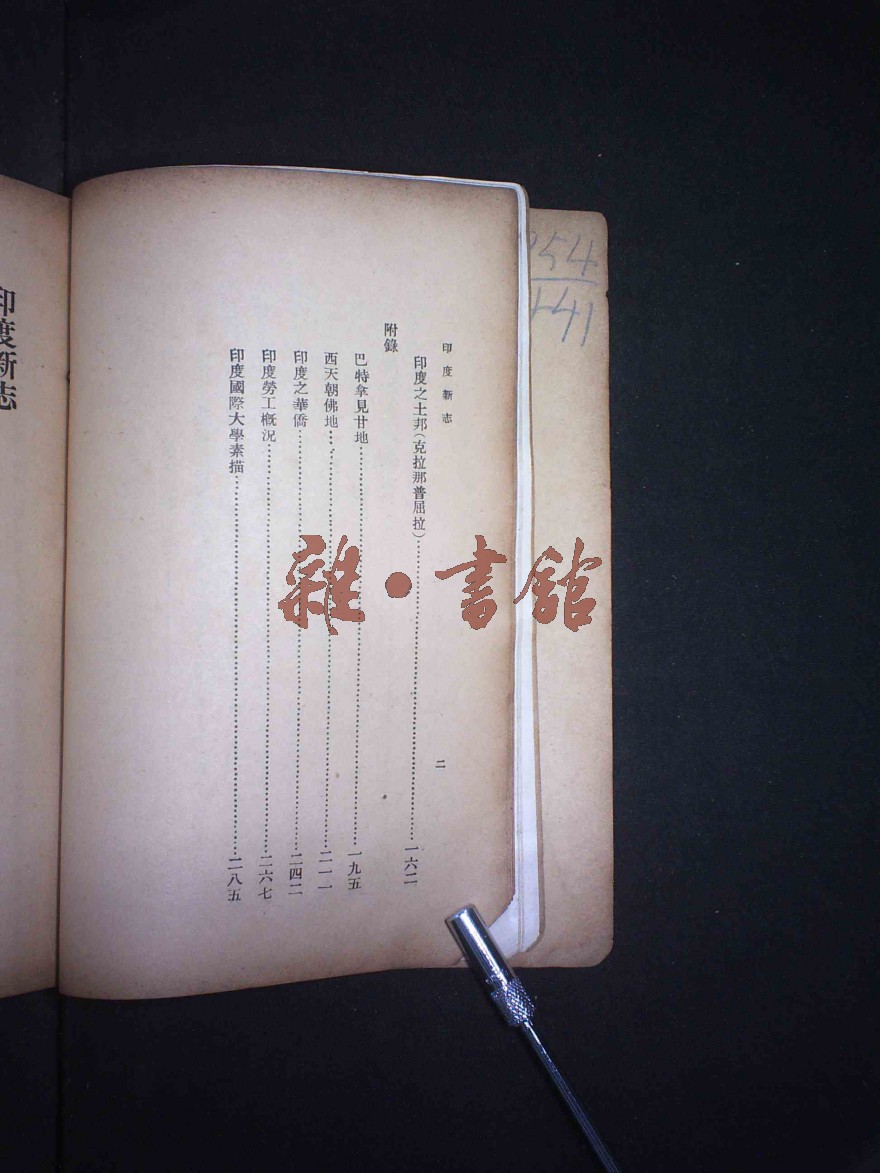 印度新志
二
印度之土邦(克拉那普屈拉)……一六二
附錄
巴特拿見甘地……一九五
西天朝佛地……二一一
印度之華僑……二四二
印度勞工概況……二六七
印度國際大學素描……二八五
印度新志
54
41
雜·書館